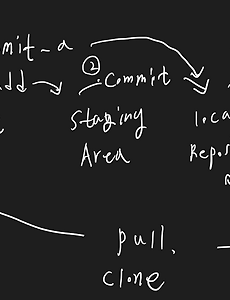 mit-a
dd
② Commit
Staging
Area
loca
Repos
pull,
clone